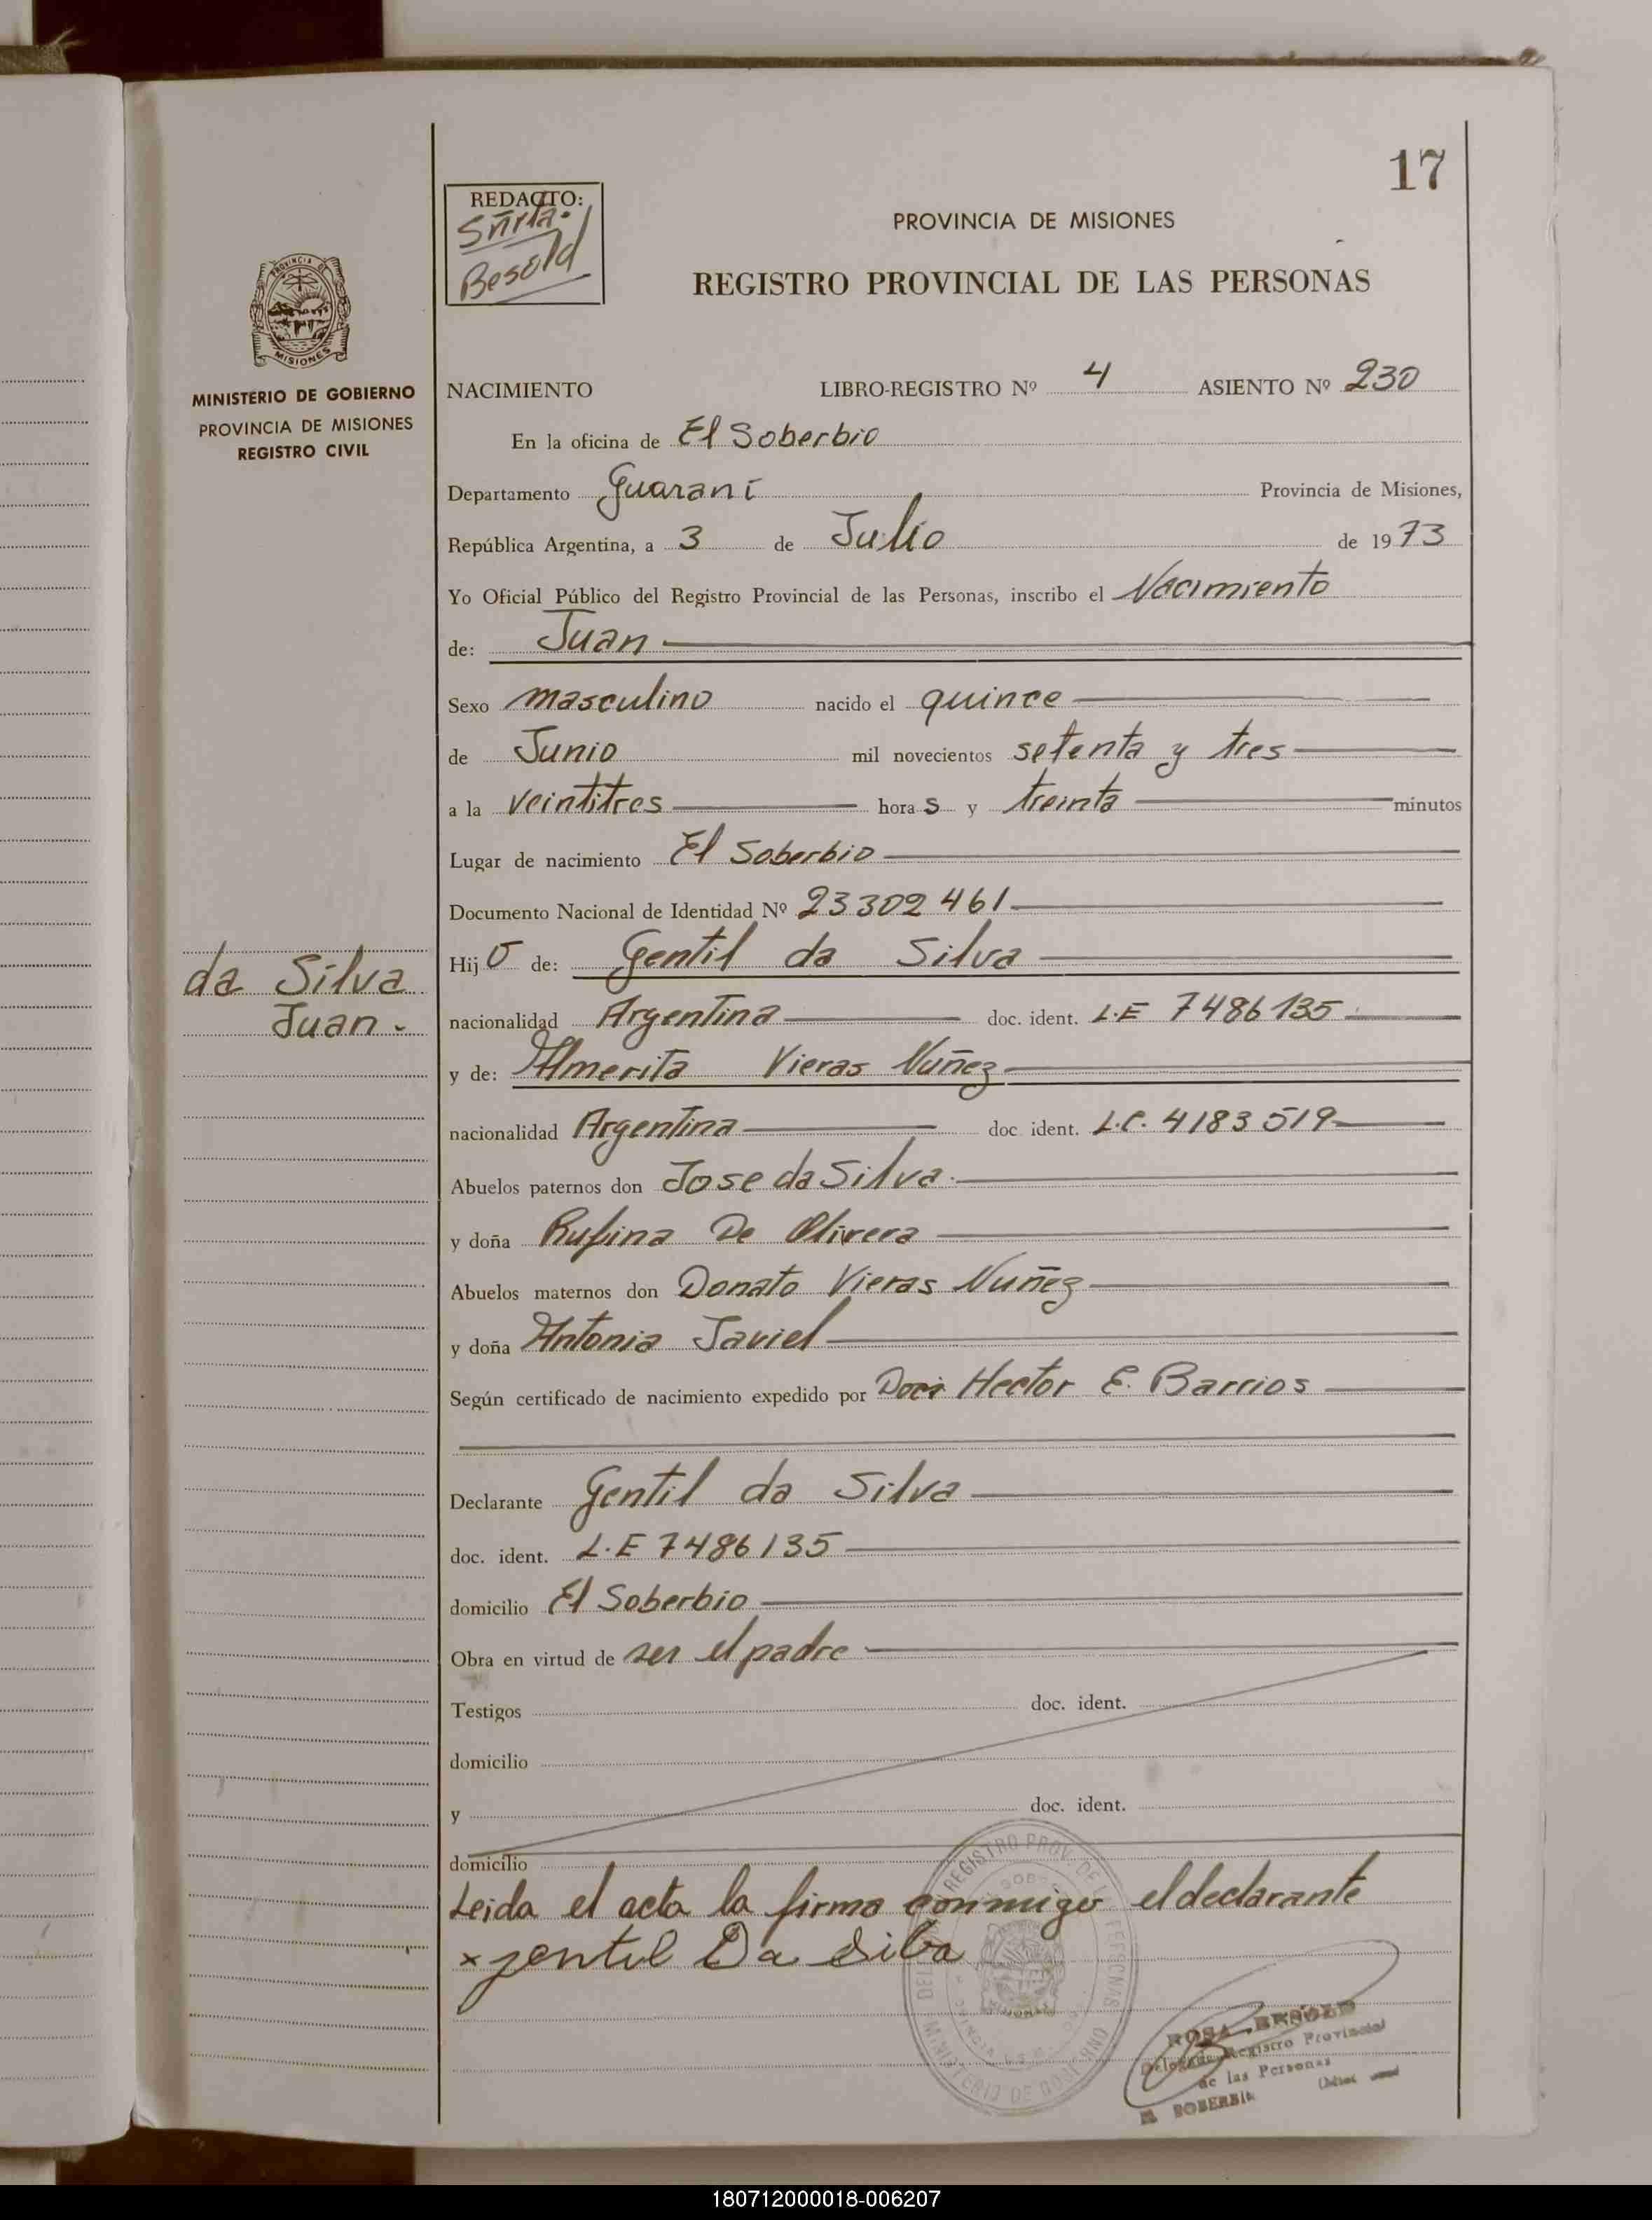 17
REDACTO:
Sñrta.
Besold
PROVINCIA DE MISIONES
REGISTRO PROVINCIAL DE LAS PERSONAS
PROVINCIA DE
MISIONES
MINISTERIO DE GOBIERNO
PROVINCIA DE MISIONES
REGISTRO CIVIL
NACIMIENTO LIBRO-REGISTRO Nº 4 ASIENTO Nº 230
En la oficina de El Soberbio
Departamento Guaraní Provincia de Misiones,
República Argentina, a 3 de Julio de 1973
Yo Oficial Público del Registro Provincial de las Personas, inscribo el Nacimiento
de: Juan
Sexo masculino nacido el quince
de Junio mil novecientos setenta y tres
a la veintitres horas y treinta minutos
Lugar de nacimiento El Soberbio
Documento Nacional de Identidad Nº 23302461
Hijo de: Gentil da Silva
da Silva
Juan.
nacionalidad Argentina doc. ident. L.E 7486135
y de: Almerita Vieras Nuñez
nacionalidad Argentina doc ident. L.C. 4183519
Abuelos paternos don Jose da Silva.
y doña Rufina De Olivera
Abuelos maternos don Donato Vieras Nuñez
y doña Antonia Javiel
Según certificado de nacimiento expedido por Hector E. Barrios
Declarante Gentil da Silva
doc. ident. L.E 7486135
domicilio El Soberbio
Obra en virtud de ser el padre
Testigos doc. ident.
domicilio
y doc. ident.
domicilio
Leida el acta la firma conmigo el declarante
x gentil Da Silba
REGISTRO PROV. DE
MINISTERIO DE GOBIERNO
ROSA BESOLD
Delegada Registro Provincial
de las Personas
EL SOBERBIO
180712000018-006207